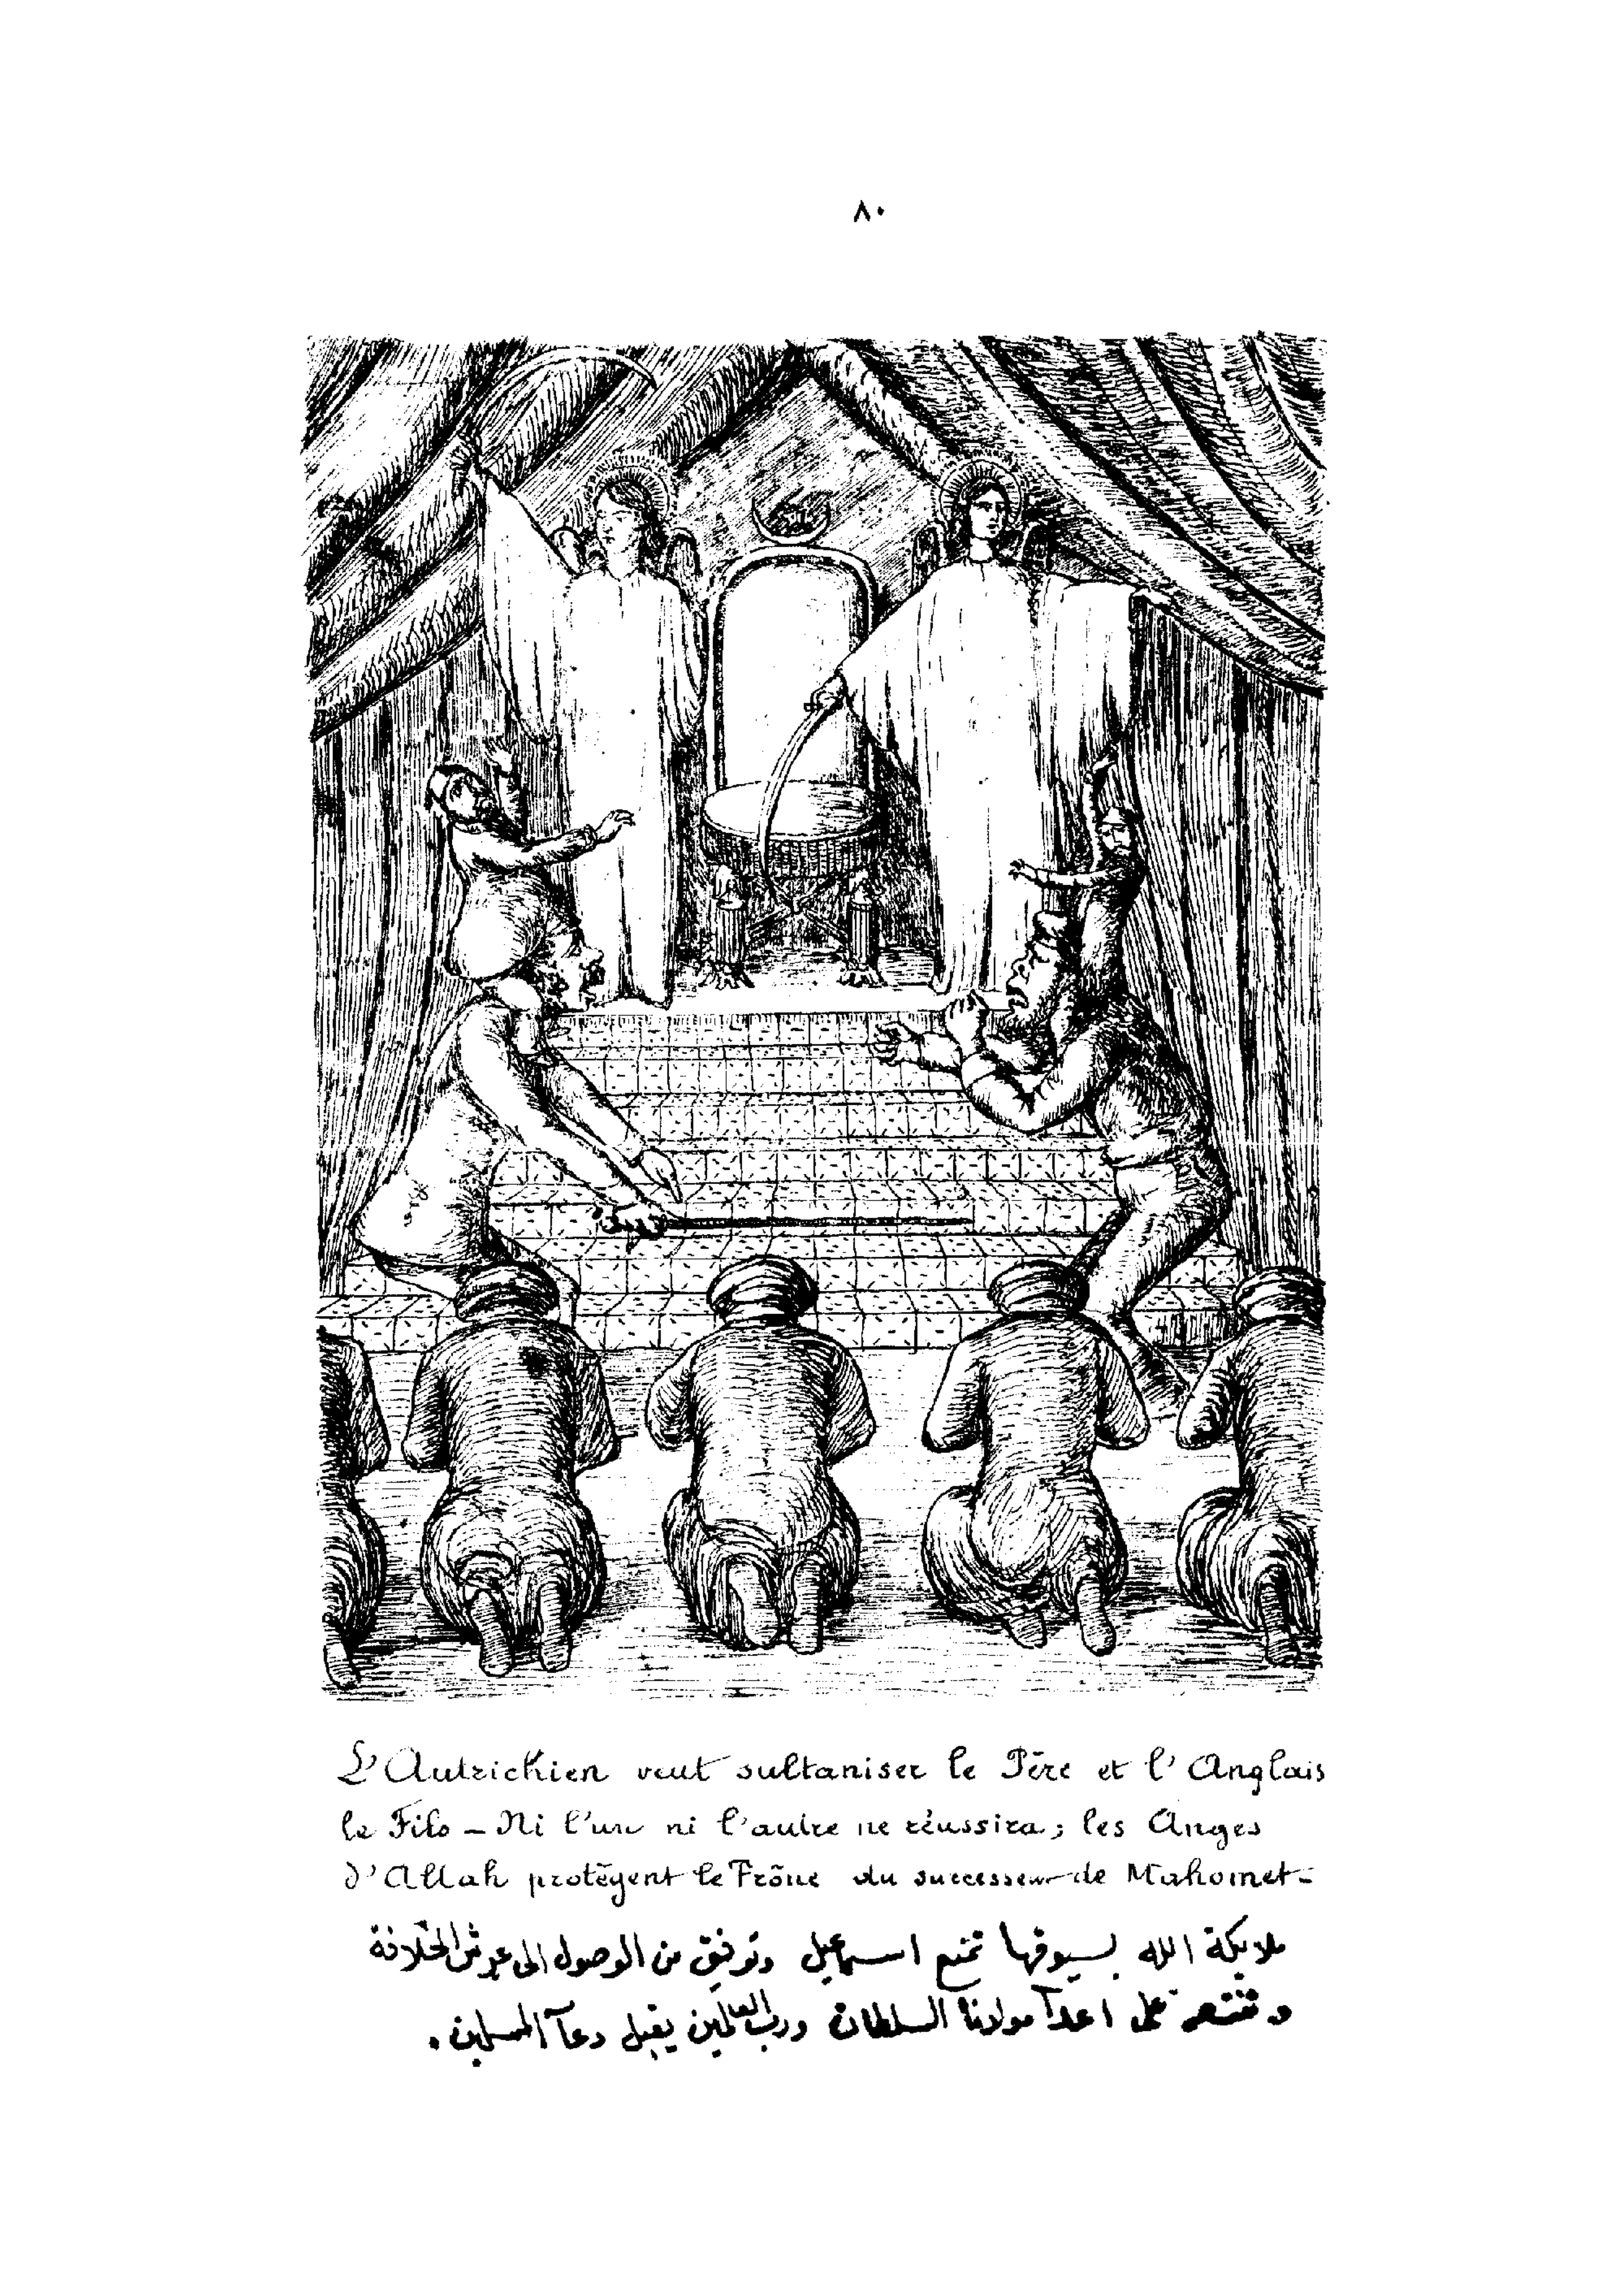 ٨٠
L'Autrichien veut sultaniser le Père et l'Anglais
le Fils – Ni l'un ni l'autre ne réussira; les Anges
d'Allah protègent le Trône du successeur de Mahomet –
ملايكة الله بسيوفها تمنع اسماعيل وتوفيق من الوصول الى عرش الخلافة
وتنتصر على اعدآ مولانا السلطان ورب العالمين يقبل دعآ المسلمين .